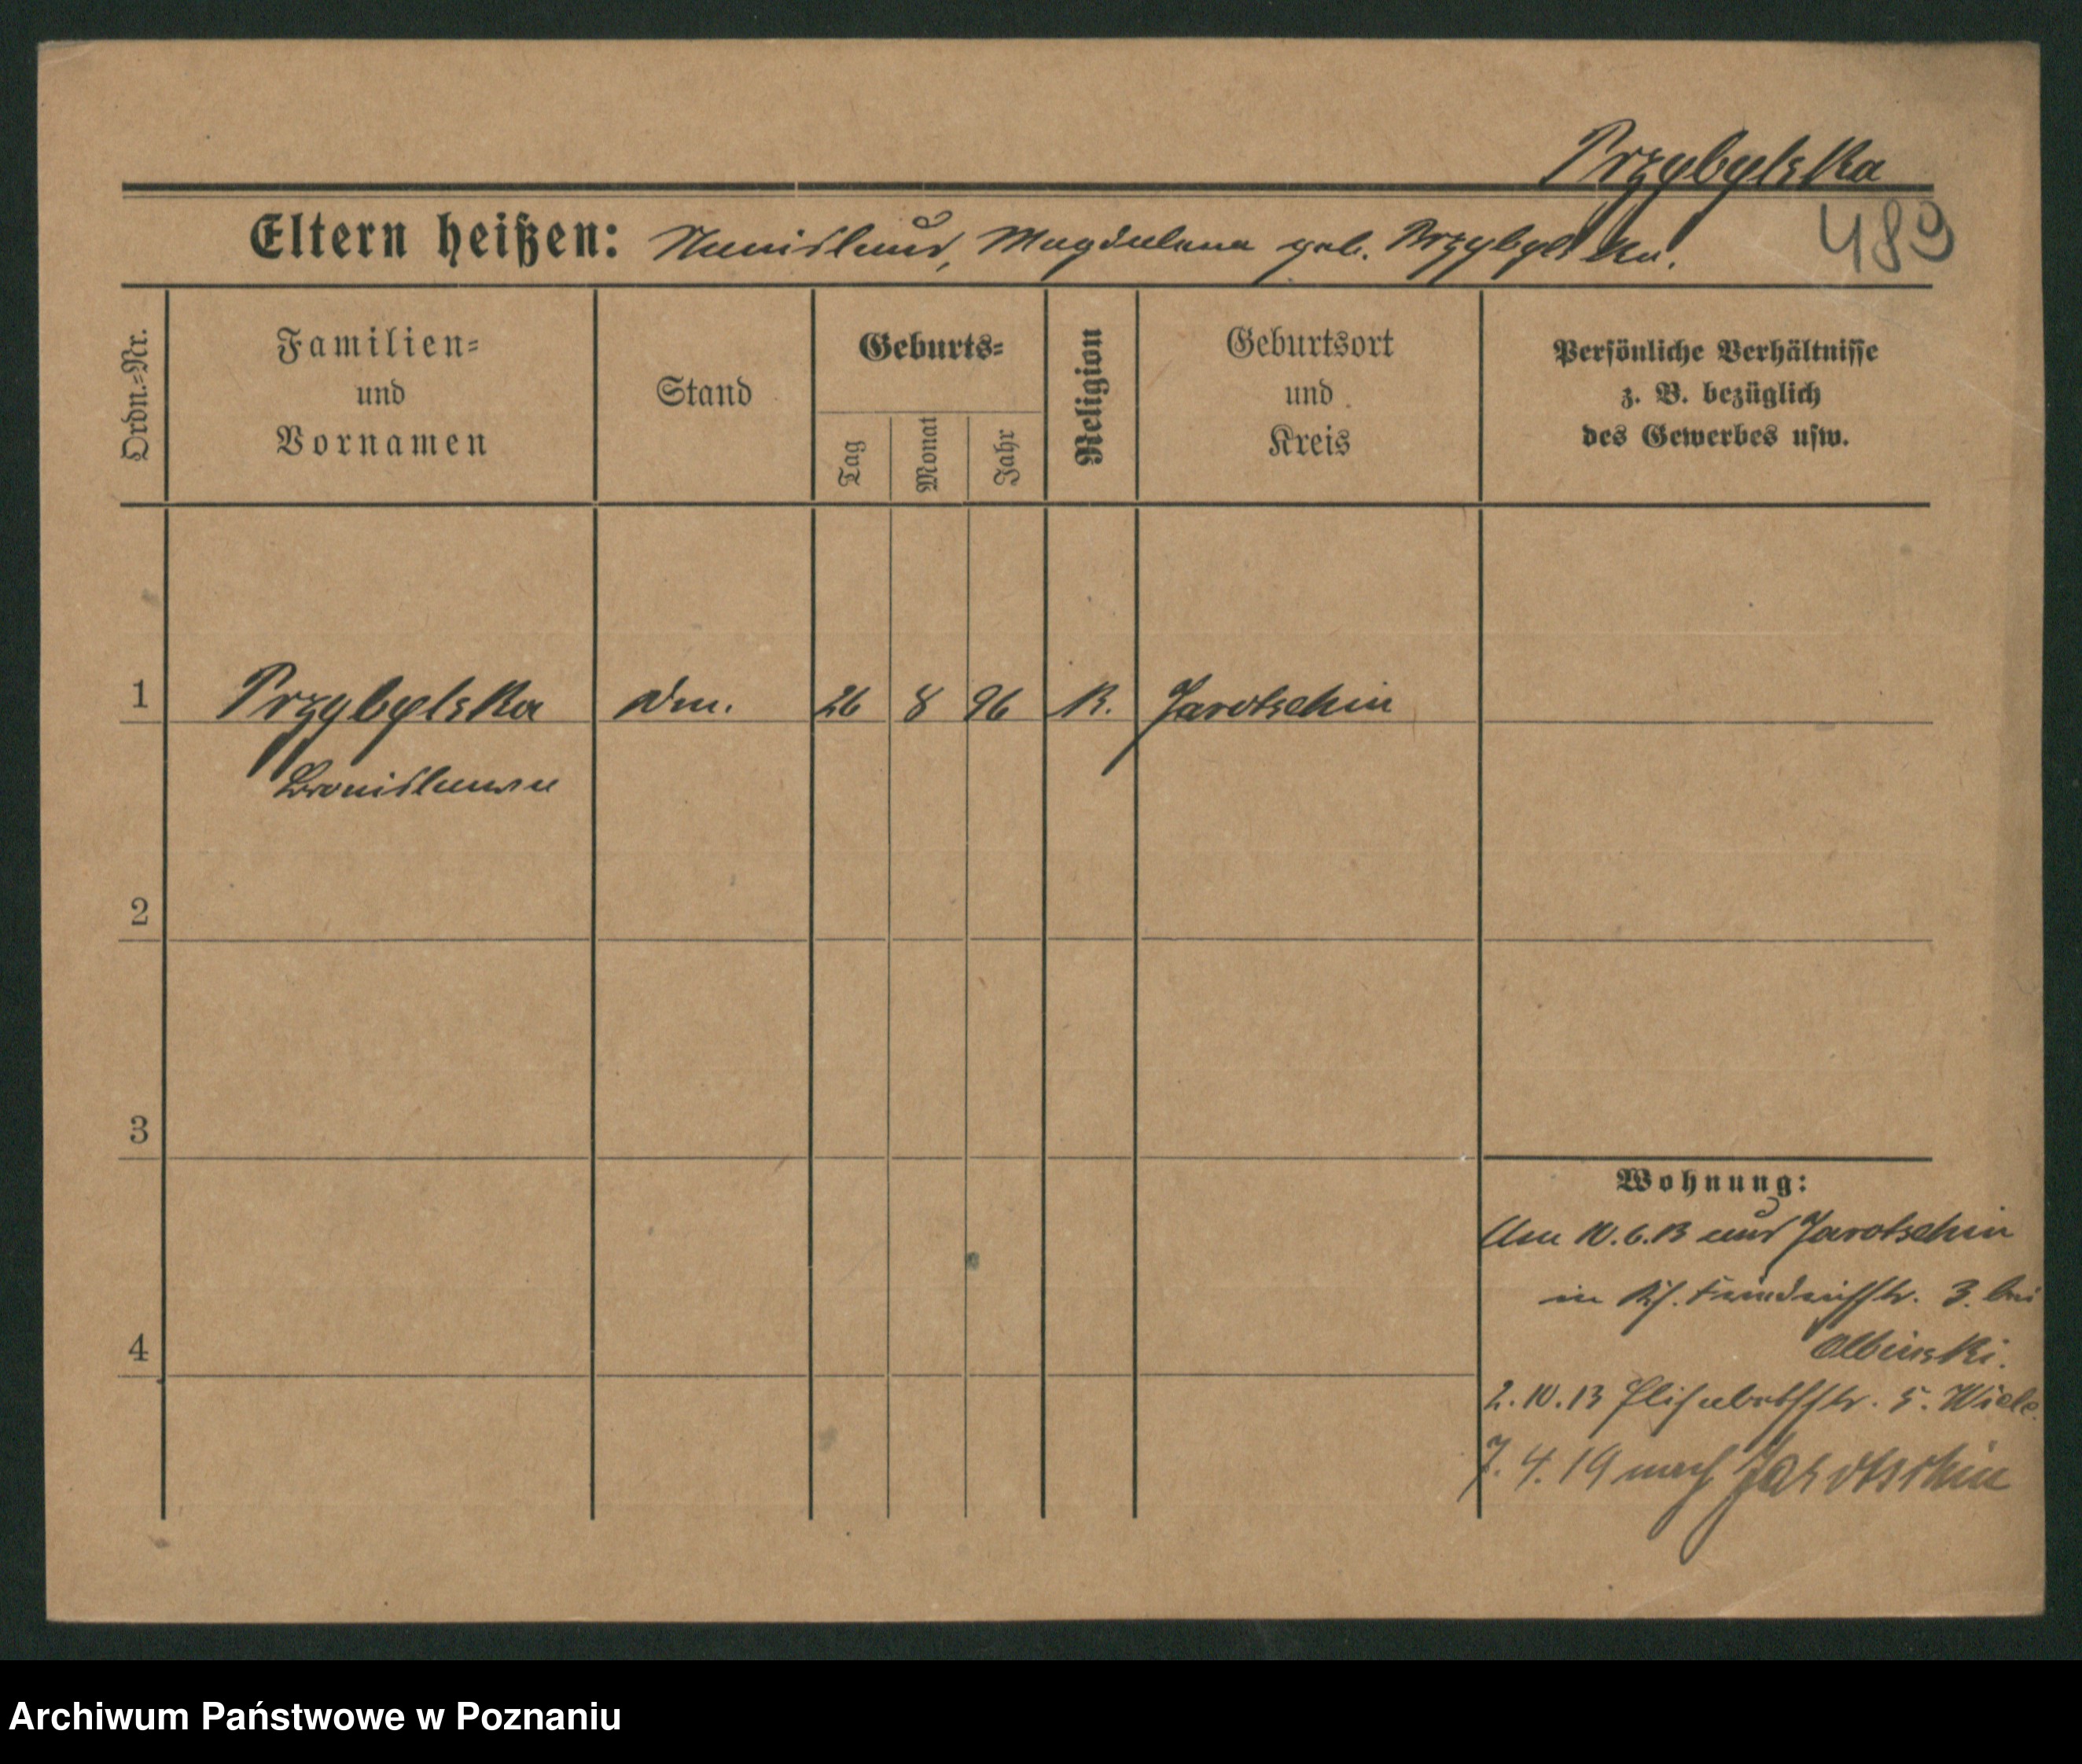 Przybylska
489
Eltern heißen: Stanislaus, Magdalena geb. Przybylska.
Ordn.=Nr.
Familien=
und
Vornamen
Stand
Geburts=
Tag
Monat
Jahr
Religion
Geburtsort
und
Kreis
Persönliche Verhältnisse
z. B. bezüglich
des Gewerbes usw.
1 Przybylska 26 8 96 K. Jarotschin
Bronislawa
2
3
4
Wohnung:
10.6.13 aus Jarotschin
in 3. bei
Albinski.
2.10.13 Elisabethstr. 5.
7.4.19 nach Jarotschin
Archiwum Państwowe w Poznaniu